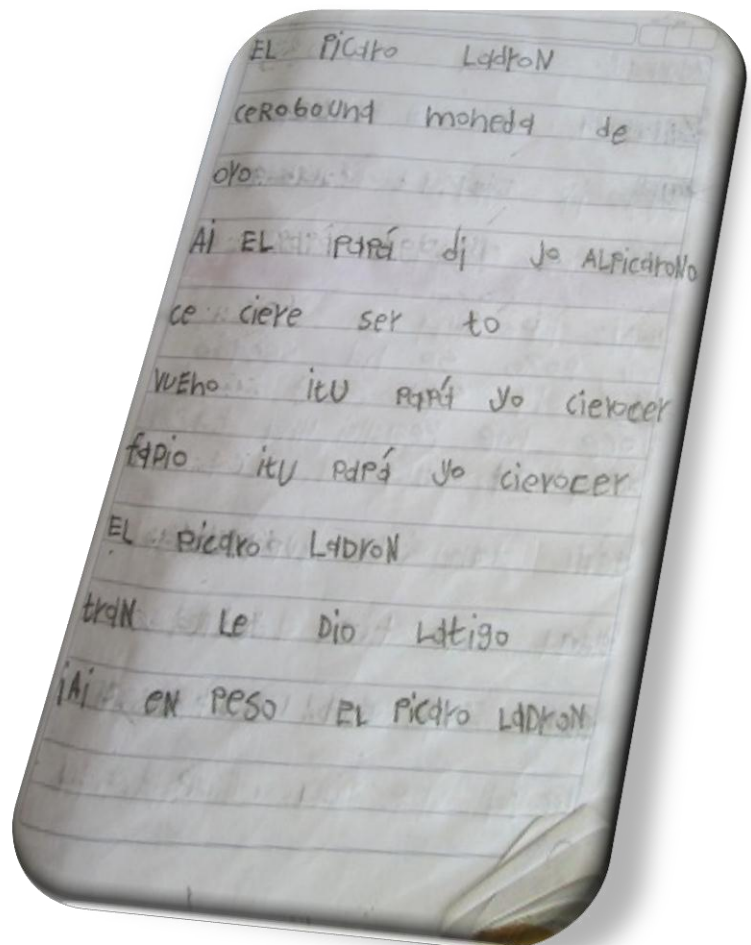 EL PiCaro LadroN
ceRobouna moneda de
oro
Ai EL papá di jo ALPicaroNo
ce ciere ser to
VUEno itU papá yo cierocer
fapio itU papá yo cierocer
EL picaro LaDroN
traN Le Dio Latigo
iAi eN Peso EL Picaro LaDroN